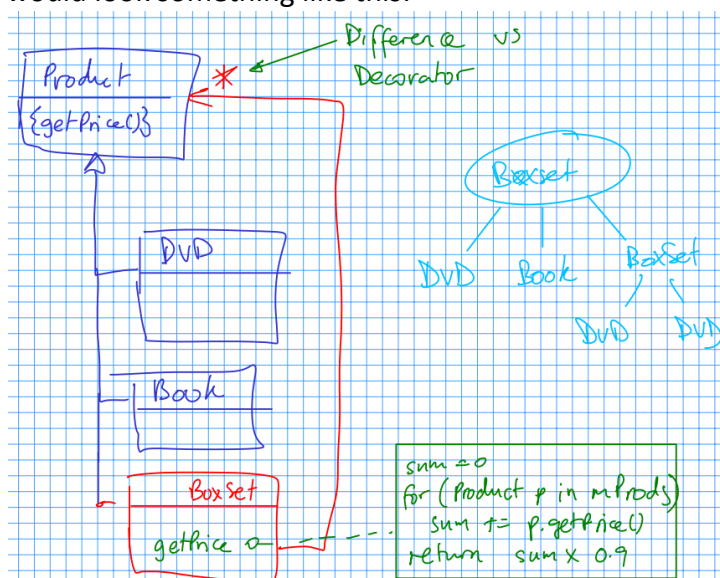 would look something like this:
Difference vs
Decorator
Product
*
{getPrice()}
DVD
Book
BoxSet
getPrice
Boxset
DVD Book BoxSet
DVD DVD
sum = 0
for (Product p in mProds)
sum += p.getPrice()
return sum x 0.9